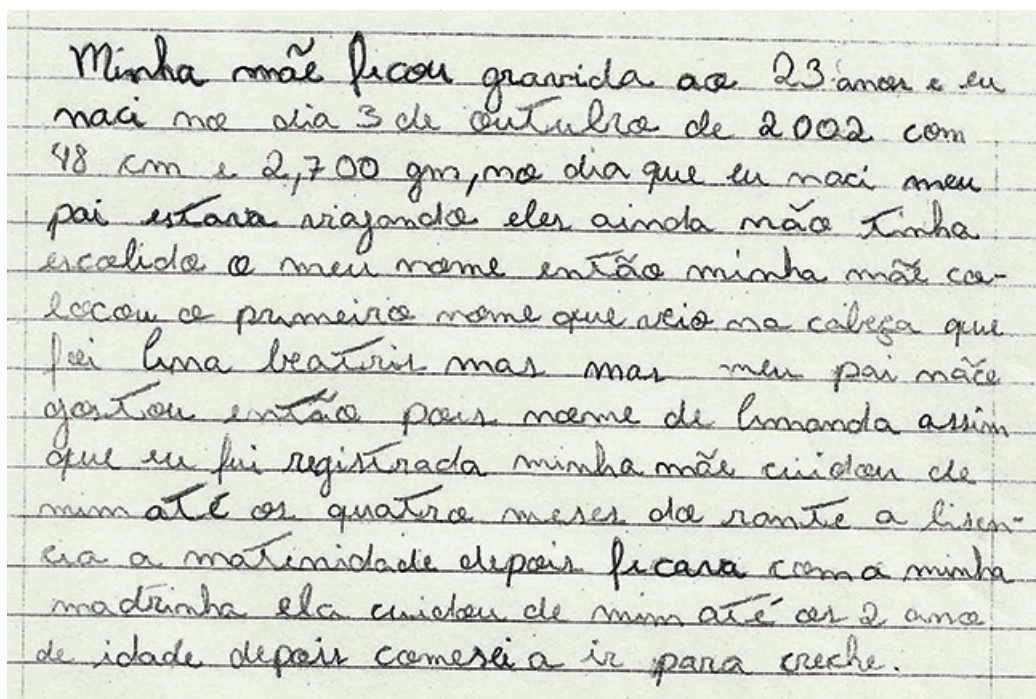 Minha mãe ficou gravida ao 23 anos e eu
naci no dia 3 de outubro de 2002 com
48 cm e 2,700 gm, no dia que eu naci meu
pai estava viajando eles ainda não tinha
escolido o meu nome então minha mãe co-
locou o primeiro nome que veio na cabeça que
foi Ana beatris mas mas meu pai não
gostou então pois nome de Amanda assim
que eu fui registrada minha mãe cuidou de
mim até os quatro meses do rante a lisen-
cia a matinidade depois ficava com a minha
madrinha ela cuidou de mim até os 2 ano
de idade depois comesei a ir para creche.